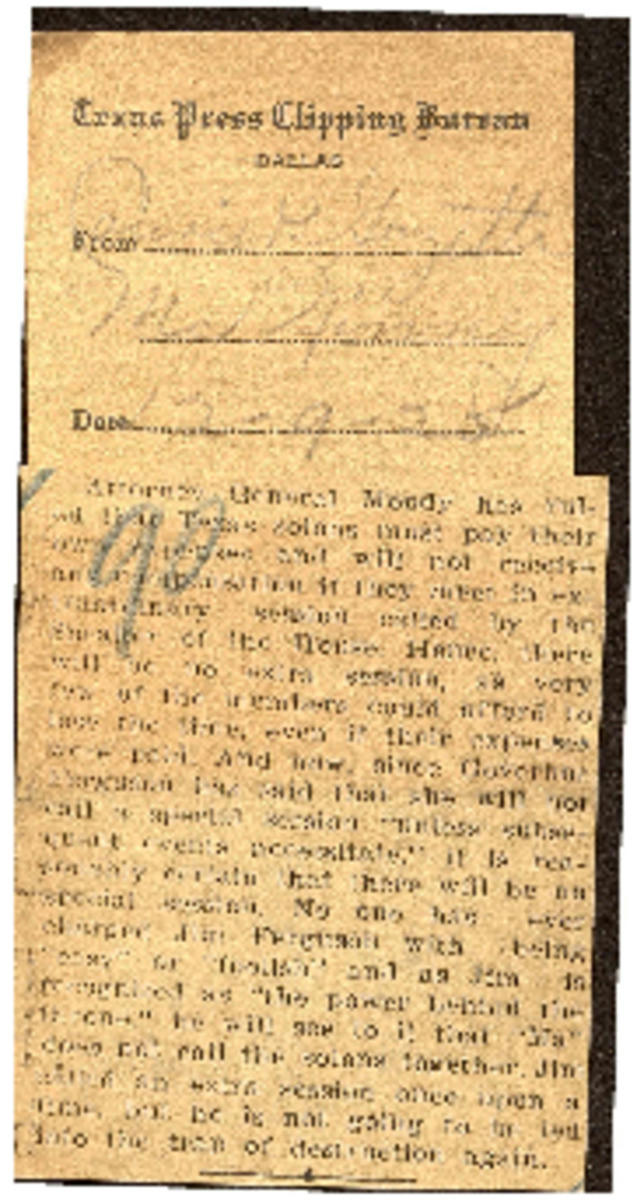 Texas Press Clipping Bureau
DALLAS
From
Mt.
Date 12-9-25
90
Attorney General Moody has rul-
ed that Texas solons must pay their
own expenses and will not receive
any compensation if they meet in ex-
traordinary session called by the
Speaker of the House. Hence, there
will be no extra session, as very
few of the members could afford to
lose the time, even if their expenses
were paid. And now, since Governor
Ferguson has said that she will not
call a special session "unless subse-
quent events necessitate," it is rea-
sonably certain that there will be no
special session. No one has ever
charged Jim Ferguson with being
"crazy" or "foolish" and as Jim is
recognized as "the power behind the
throne" he will see to it that "Ma"
does not call the solons together. Jim
called an extra session once upon a
time, but he is not going to be led
into the trap of destruction again.